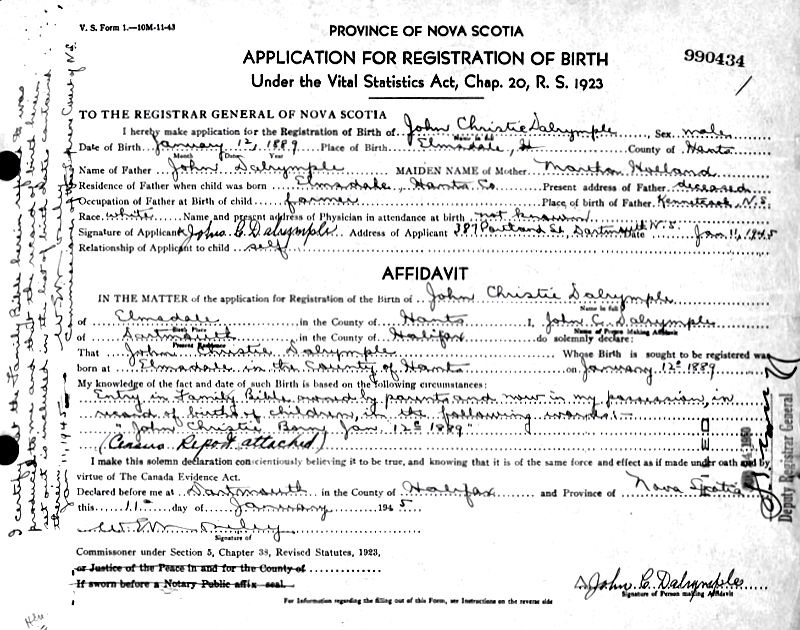 V. S. Form 1.—10M-11-43
PROVINCE OF NOVA SCOTIA
APPLICATION FOR REGISTRATION OF BIRTH
990434
Under the Vital Statistics Act, Chap. 20, R. S. 1923
TO THE REGISTRAR GENERAL OF NOVA SCOTIA
I hereby make application for the Registration of Birth of John Christie Dalrymple Sex male
Name in full
Date of Birth January 12, 1889 Place of Birth Elmsdale, County of Hants
Month Date Year
Name of Father John Dalrymple MAIDEN NAME of Mother Martha Holland
Residence of Father when child was born Elmsdale, Hants Co Present address of Father deceased
Occupation of Father at Birth of child farmer Place of birth of Father N.S.
Race white Name and present address of Physician in attendance at birth not known
Signature of Applicant John C. Dalrymple Address of Applicant 387 Portland St, Dartmouth N.S. Date Jan 11, 1945
Relationship of Applicant to child self
AFFIDAVIT
IN THE MATTER of the application for Registration of the Birth of John Christie Dalrymple
Name in full
of Elmsdale in the County of Hants I, John C. Dalrymple
Birth Place Name of Person Making Affidavit
of Dartmouth in the County of Halifax do solemnly declare:
Present Residence
That John Christie Dalrymple Whose Birth is sought to be registered was
born at Elmsdale in the County of Hants on January 12 1889
My knowledge of the fact and date of such Birth is based on the following circumstances:
Entry in Family Bible owned by parents and now in my possession, in
record of births of children, in the following words:-
"John Christie Born Jan. 12 1889"
(Census Report attached)
I make this solemn declaration conscientiously believing it to be true, and knowing that it is of the same force and effect as if made under oath and by
virtue of The Canada Evidence Act.
Declared before me at Dartmouth in the County of Halifax and Province of Nova Scotia
this 11 day of January 1945
Signature of
Commissoner under Section 5, Chapter 38, Revised Statutes, 1923,
or Justice of the Peace in and for the County of
If sworn before a Notary Public affix seal.
John C. Dalrymple
Signature of Person making Affidavit
For Information regarding the filling out of this Form, see Instructions on the reverse side
I certify that the Family Bible herein referred to was
produced to me and that the record of birth herein
set out is included in the list of birth dates contained
therein
Jan 11, 1945
Commissioner of the Supreme Court of N.S.
Deputy Registrar General